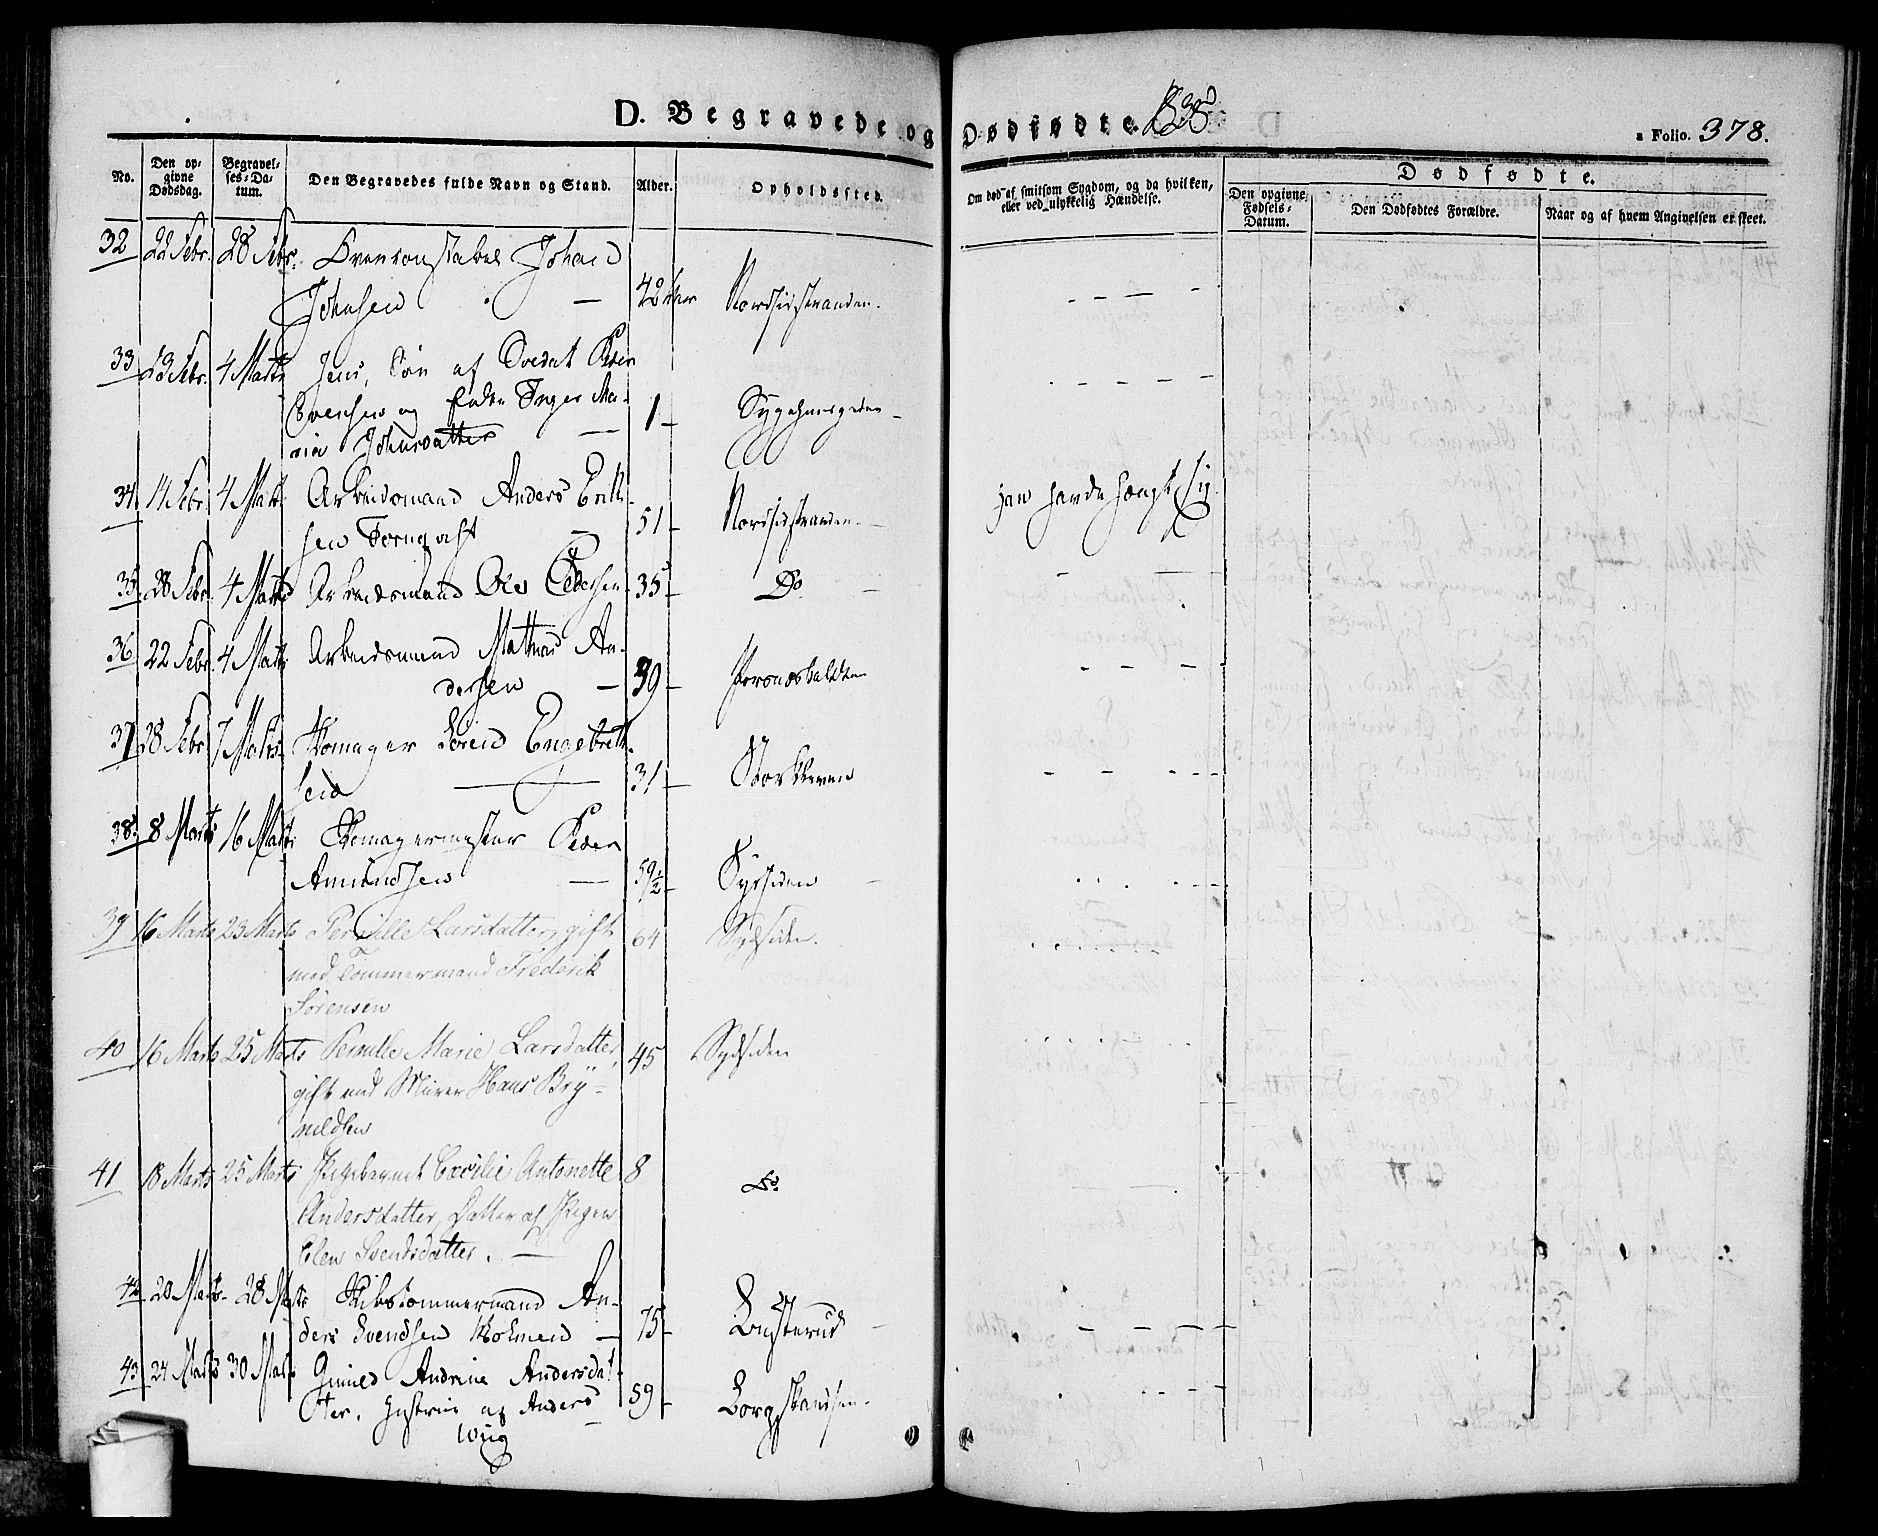 D. Begravede og Dødfødte. 1835
a Folio. 378.
No.
Den opgivne Dødsdag.
Begravelses-Datum.
Den Begravedes fulde Navn og Stand.
Alder.
Opholdssted.
Om død af smitsom Sygdom, og da hvilken, eller ved ulykkelig Hændelse.
Dødfødte.
Den opgivne Fødsels-Datum.
Den Dødfødtes Forældre.
Naar og af hvem Angivelsen er skeet.
32 22 Febr. 28 Febr. Johan
Johnsen — 42 Nordsidstranden.
33 Febr. 4 Marts Jens, Søn af Peder
Svensen og Inger Ma-
ria Johnsdatter — 1 —
34 14 Febr. 4 Marts Arbeidsmand Anders Erik-
sen 51 — Nordsidstranden — han havde hængt sig
35 28 Febr. 4 Marts Arbeidsmand Ole Pedersen 35 — Do
36 22 Febr. 4 Marts Arbeidsmand Mathias An-
dersen — 39 —
37 28 Febr. 7 Marts Skomager Søren Engebret-
sen — 31 —
38 8 Marts 16 Marts Skomagermester Peder
Amundsen — 59½ Sydsiden —
39 16 Marts 23 Marts Pernille Larsdatter, gift 64 Sydsiden.
med Tømmermand Frederik
Sørensen
40 16 Marts 25 Marts Pernille Marie Larsdatter, 45 Sydsiden
gift med Murer Hans Bry-
nildsen
41 18 Marts 25 Marts Pigebarnet Cecilie Antonette 8 Do.
Andersdatter, Datter af Pigen
Elen Svendsdatter. —
42 20 Marts 28 Marts Skibstømmermand An-
ders Svendsen Holmen — 75 — Busterud —
43 24 Marts 30 Marts Andrine Andersdat-
ter, Hustrue af Anders 59 — Borgskandsen.